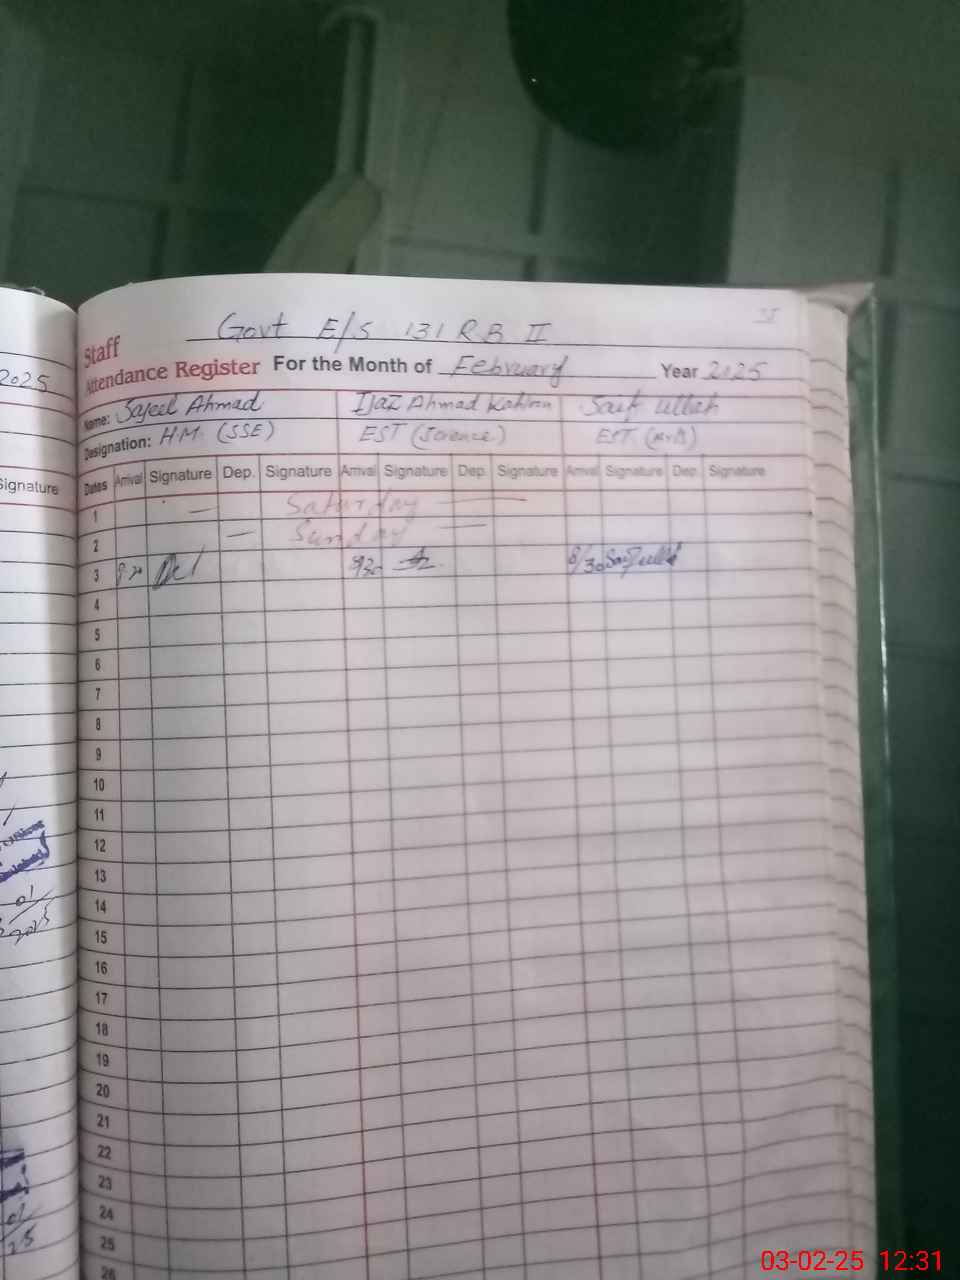 Govt E/S 131 R.B II
Staff
Attendance Register For the Month of February Year 2025
2025
Name: Sajeel Ahmad Ijaz Ahmad Saif ullah
Designation: H.M. (SSE) EST (Science) EST
Signature
Dates Arrival Signature Dep. Signature Arrival Signature Dep. Signature Arrival Signature Dep. Signature
1 — Saturday —
2 — Sunday —
3 8/30 Saifullah
4
5
6
7
8
9
10
11
12
13
14
15
16
17
18
19
20
21
22
23
24
25
26
01
2025
01
25
03-02-25 12:31